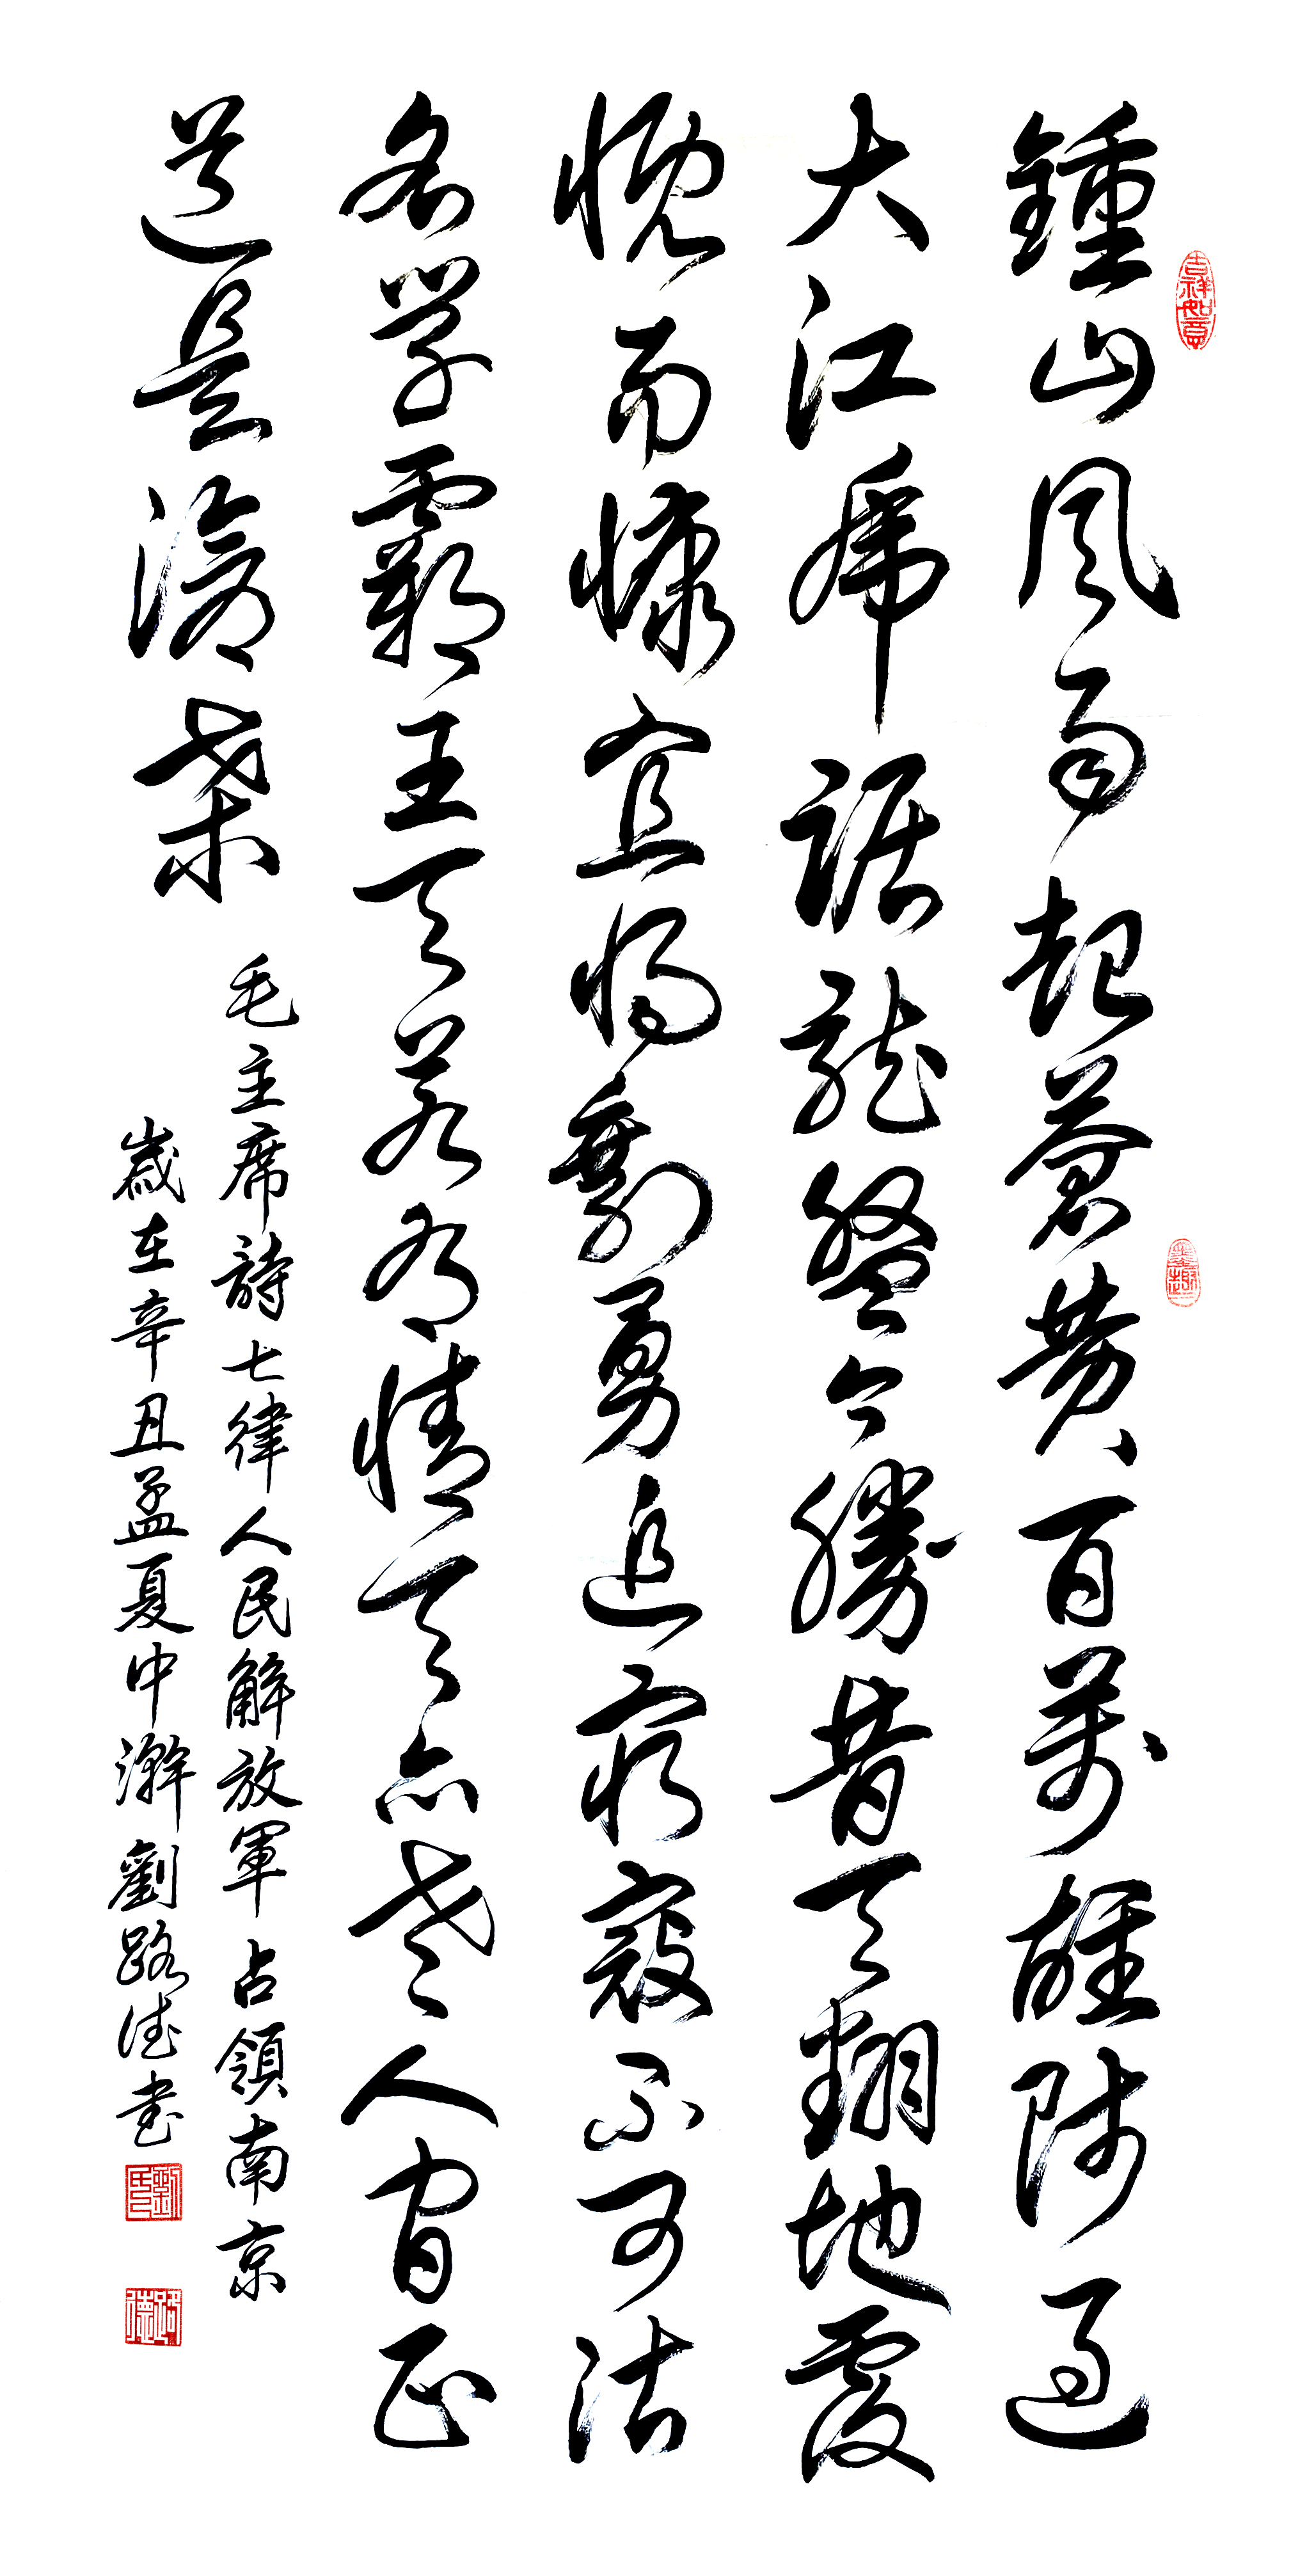 吉祥如意
鍾山風雨起蒼黄百萬雄師過
大江虎踞龍盤今勝昔天翻地覆
慨而慷宜將剩勇追窮寇不可沽
名學霸王天若有情天亦老人間正
道是滄桑
毛主席詩七律人民解放軍占領南京
歲在辛丑孟夏中澣劉路德書
劉氏
路德